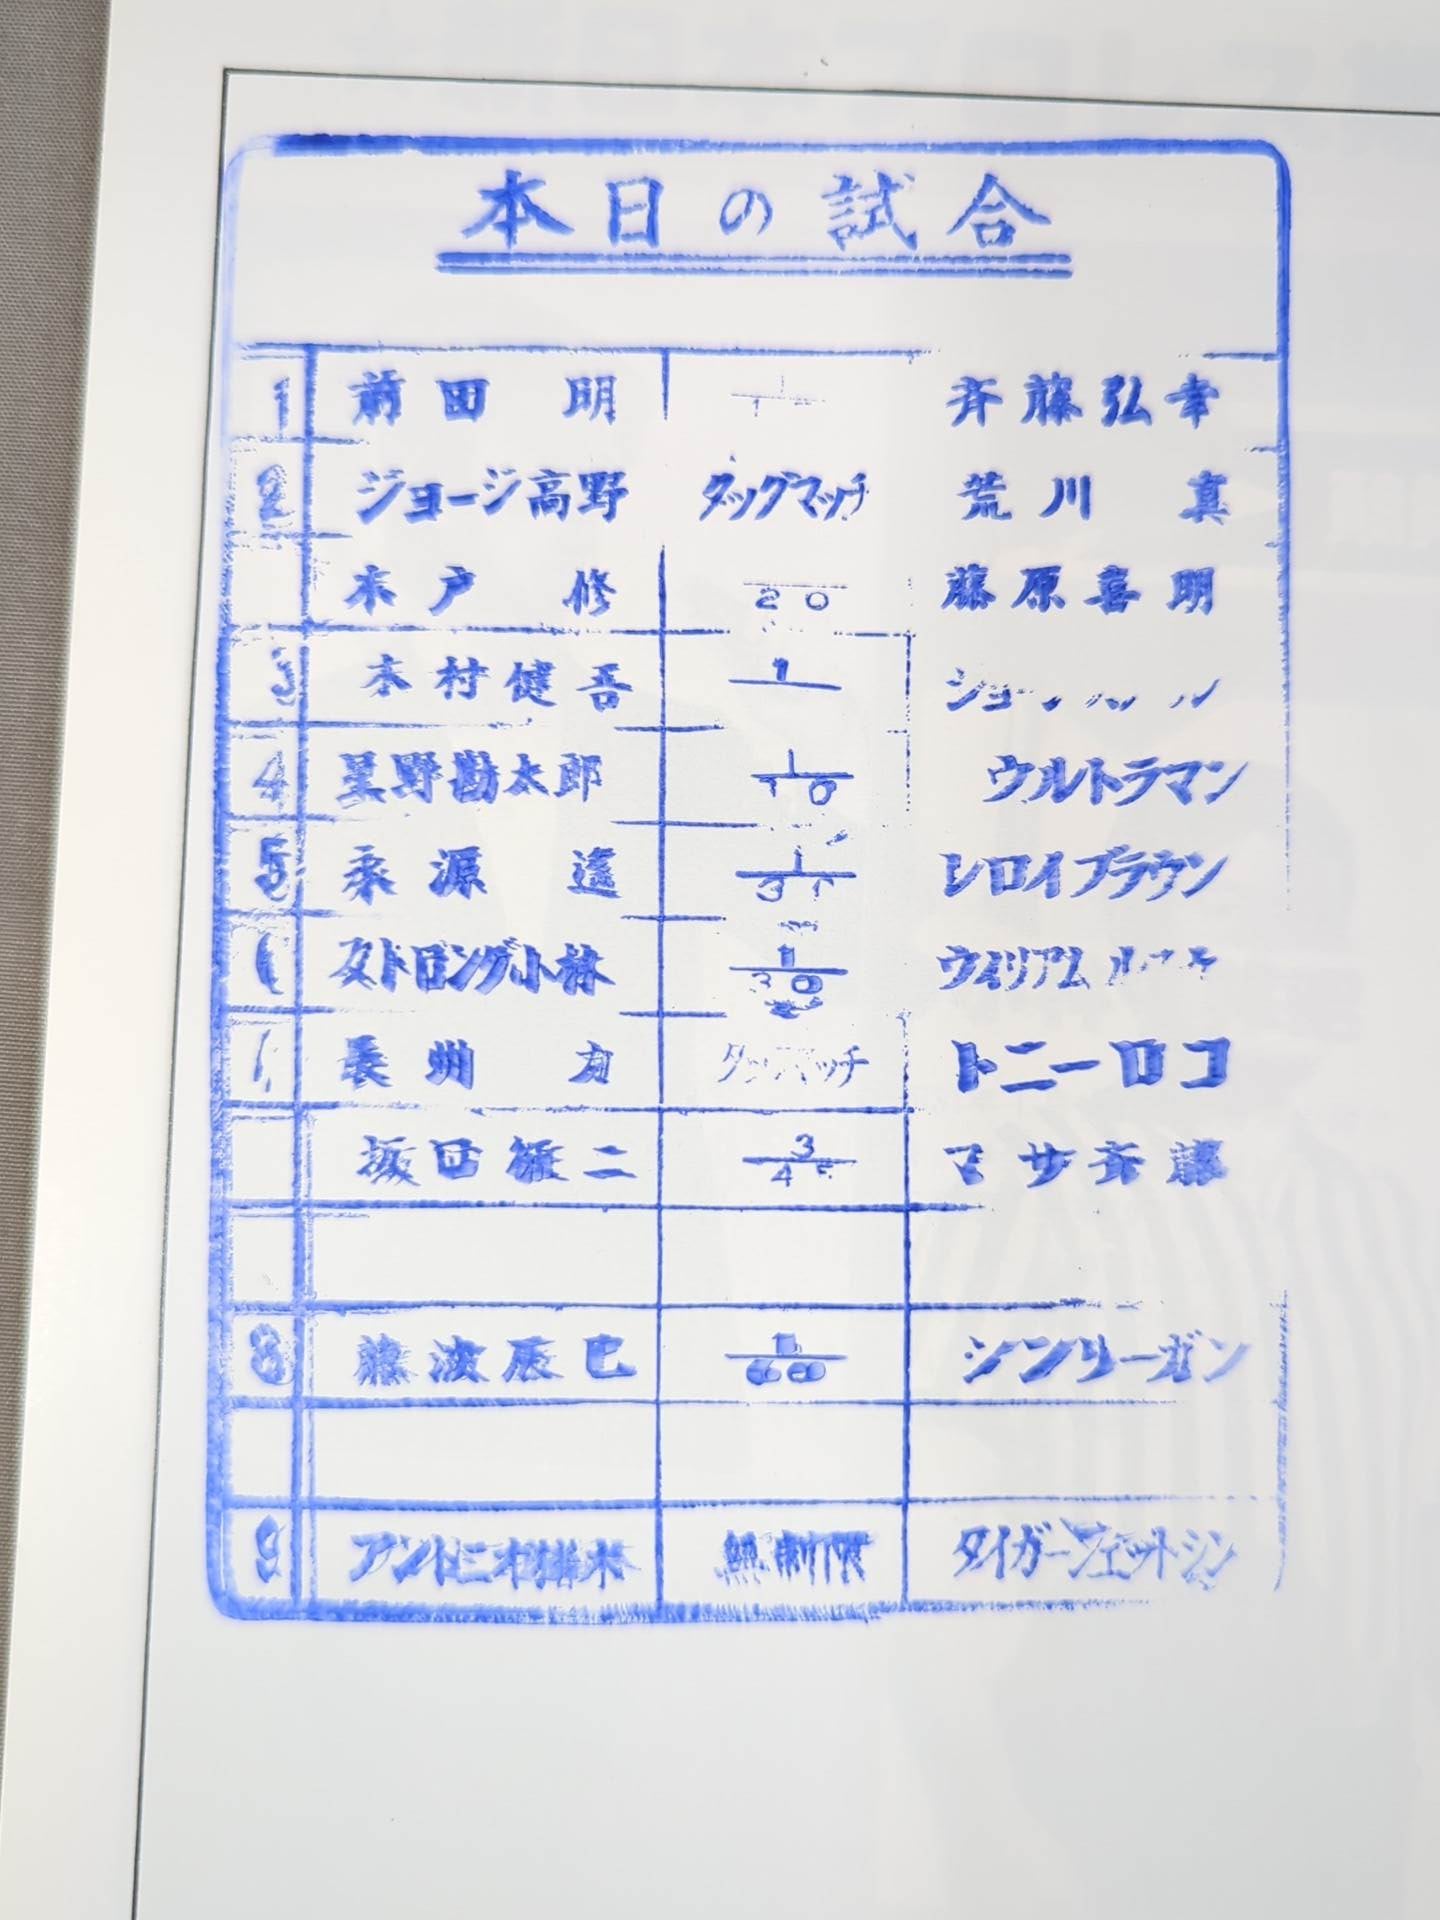 本日の試合
1 前田 明 1 斉藤弘幸
2 ジョージ高野 タッグマッチ 荒川 真
木戸 修 20 藤原喜明
3 木村健吾 1
4 星野勘太郎 1 10 ウルトラマン
5 永源遙 1 レロイブラウン
ストロング小林 1 30 ウィリアム
長州 力 タッグマッチ トニーロコ
坂口征二 3 45 マサ斉藤
8 藤波辰巳 1 60 シンリーガン
9 アントニオ猪木 無制限 タイガージェットシン